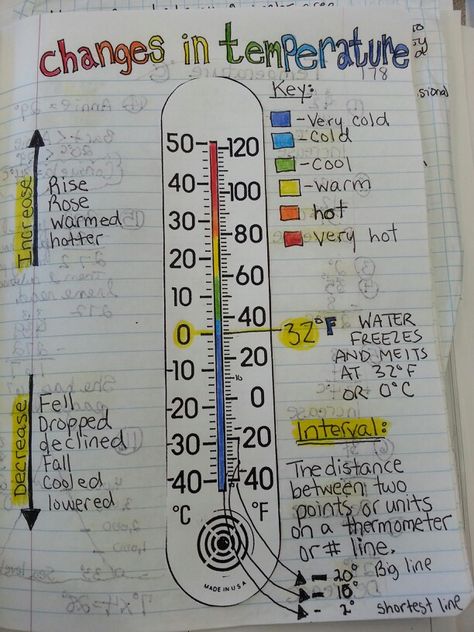 Changes in temperature
178
Key:
-Very cold
-cold
-cool
-warm
-hot
-very hot
Increase
Rise
Rose
warmed
hotter
Decrease
Fell
Dropped
declined
Fall
cooled
lowered
50 120
40 100
30 80
20 60
10 40
0 32°F
-10 20
-20 0
-30 -20
-40 -40
°C °F
MADE IN U.S.A
WATER
FREEZES
AND MELTS
AT 32°F
OR 0°C
Interval:
The distance
between two
points or units
on a thermometer
or # line.
- 20° Big line
- 10°
- 2° shortest line